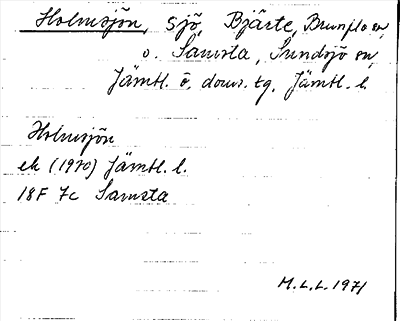 Holmsjön, sjö, Bjärte, Brunflo sn,
o. Samsta, Sundsjö sn,
Jämtl. ö. doms. tg, Jämtl. l.
Holmsjön
ek (1970) Jämtl. l.
18F 7c Samsta
M.L.L. 1971